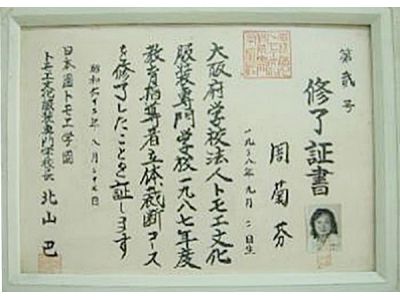 第弐号
修了証書
周菊芬
年九月二日生
大阪府学校法人トモエ文化
服装専門学校一九八七年度
教育指導者立体裁断コース
を修了したことを証します
昭和六十二年八月二十七日
日本国トモエ学園
トモエ文化服装専門学校長 北山 巴